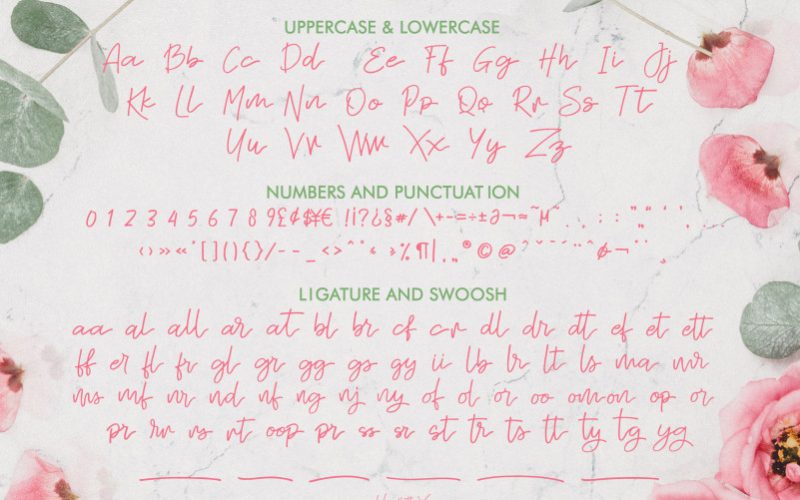 UPPERCASE & LOWERCASE
Aa Bb Cc Dd Ee Ff Gg Hh Ii Jj
Kk Ll Mm Nn Oo Pp Qq Rr Ss Tt
Uu Vv Ww Xx Yy Zz
NUMBERS AND PUNCTUATION
0 1 2 3 4 5 6 7 8 9 £ ¢ $ ¥ € ! ¡ ? ¿ § # / \ + - = ÷ ± ∂ ¬ ≈ ~ µ
‹ › » « [ ] ( ) { } / - - _ < > % ¶ | ® © @
LIGATURE AND SWOOSH
aa al all ar at bl br cf cr dl dr dt ef et ett
ff er fl fr gl gr gg gs gy ii lb lr lt ls ma mr
ms mf nr nd nf ng nj ny of ol or oo om on op or
pr rr rs rt oop pr ss sr st tr ts tt ty tg yg